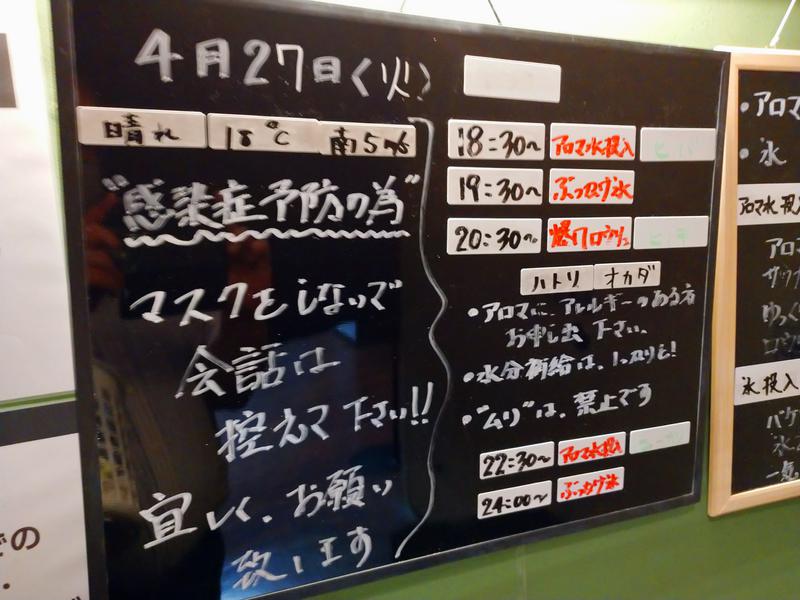 4月27日(火)
晴れ 18℃ 南5m/s
"感染症予防の為"
マスクをしないで
会話は
控えて下さい!!
宜しく、お願い
致します
18:30~ アロマ水投入
19:30~ ぶっかけ氷
20:30~ 爆アロウリュ
ハトリ オカダ
・アロマに、アレルギーのある方
お申し出下さい。
・水分補給は、しっかりと!
・"ムリ"は、禁止です
22:30~ アロマ水投入
24:00~ ぶっかけ氷
・アロマ
・氷
アロマ水投入
アロマ
サウナ
ゆっく
ロウリ
氷投入
バケ
氷
一気
での